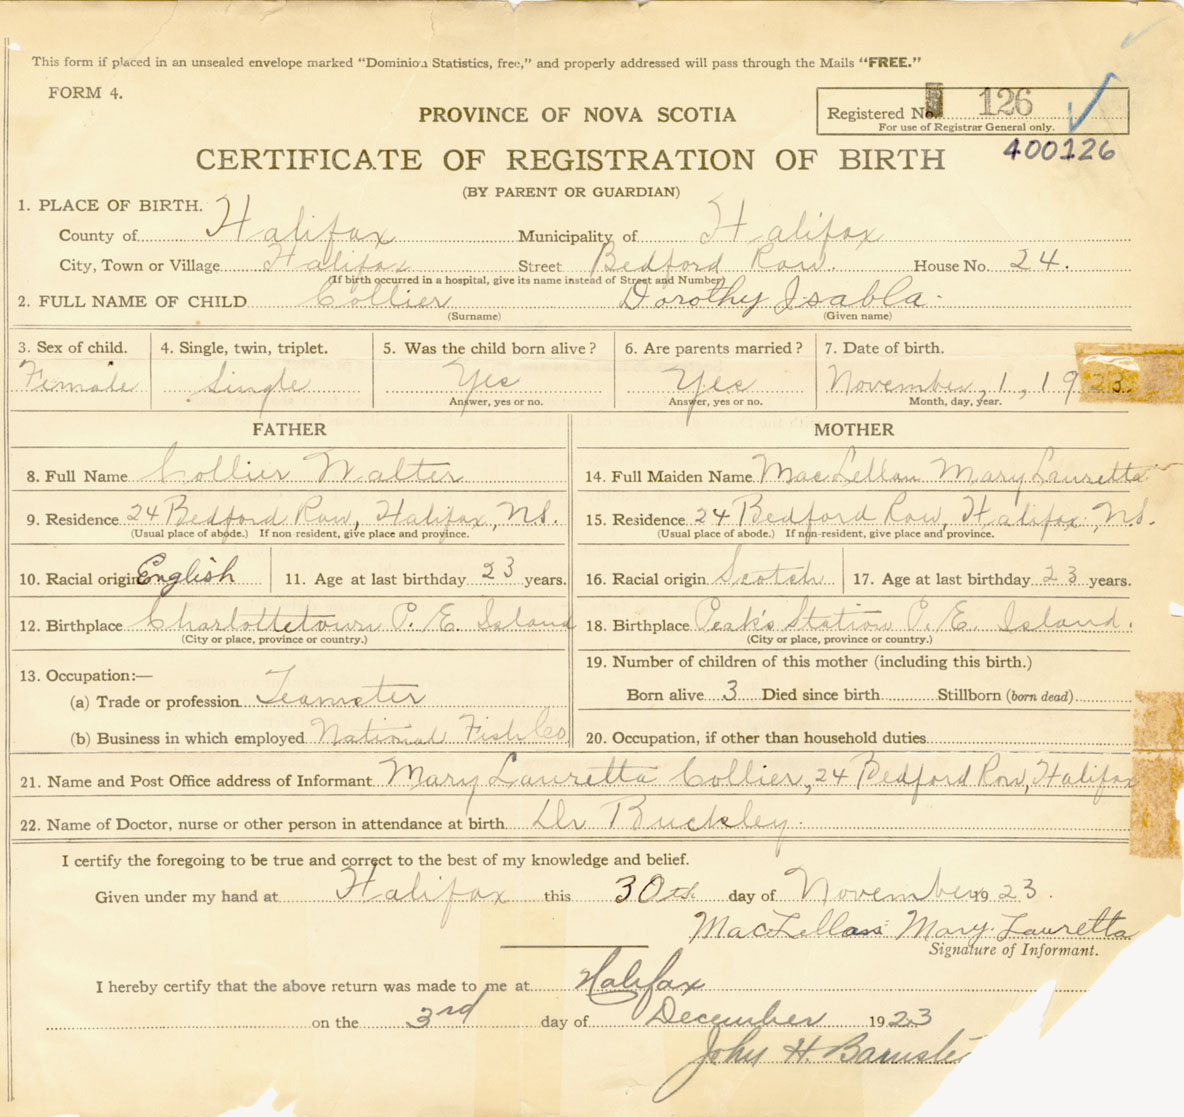 This form if placed in an unsealed envelope marked "Dominion Statistics, free," and properly addressed will pass through the Mails "FREE."
FORM 4.
PROVINCE OF NOVA SCOTIA
Registered No. 126
For use of Registrar General only.
400126
CERTIFICATE OF REGISTRATION OF BIRTH
(BY PARENT OR GUARDIAN)
1. PLACE OF BIRTH.
County of Halifax Municipality of Halifax
City, Town or Village Halifax Street Bedford Row. House No. 24.
(If birth occurred in a hospital, give its name instead of Street and Number)
2. FULL NAME OF CHILD Collier Dorothy Isabla.
(Surname) (Given name)
3. Sex of child. 4. Single, twin, triplet. 5. Was the child born alive? 6. Are parents married? 7. Date of birth.
Female Single Yes Yes November, 1, 1923
Answer, yes or no. Answer, yes or no. Month, day, year.
FATHER MOTHER
8. Full Name Collier Walter 14. Full Maiden Name MacLellan Mary Lauretta
9. Residence 24 Bedford Row, Halifax, N.S. 15. Residence 24 Bedford Row, Halifax, N.S.
(Usual place of abode.) If non resident, give place and province. (Usual place of abode.) If non-resident, give place and province.
10. Racial origin English 11. Age at last birthday 23 years. 16. Racial origin Scotch 17. Age at last birthday 23 years.
12. Birthplace Charlottetown P. E. Island 18. Birthplace Peak's Station P. E. Island.
(City or place, province or country.) (City or place, province or country.)
13. Occupation:— 19. Number of children of this mother (including this birth.)
(a) Trade or profession Teamster Born alive 3 Died since birth Stillborn (born dead)
(b) Business in which employed National Fish Co 20. Occupation, if other than household duties
21. Name and Post Office address of Informant Mary Lauretta Collier, 24 Bedford Row, Halifax
22. Name of Doctor, nurse or other person in attendance at birth Dr Buckley.
I certify the foregoing to be true and correct to the best of my knowledge and belief.
Given under my hand at Halifax this 30th day of November 1923.
MacLellan Mary Lauretta
Signature of Informant.
I hereby certify that the above return was made to me at Halifax
on the 3rd day of December 1923
John H